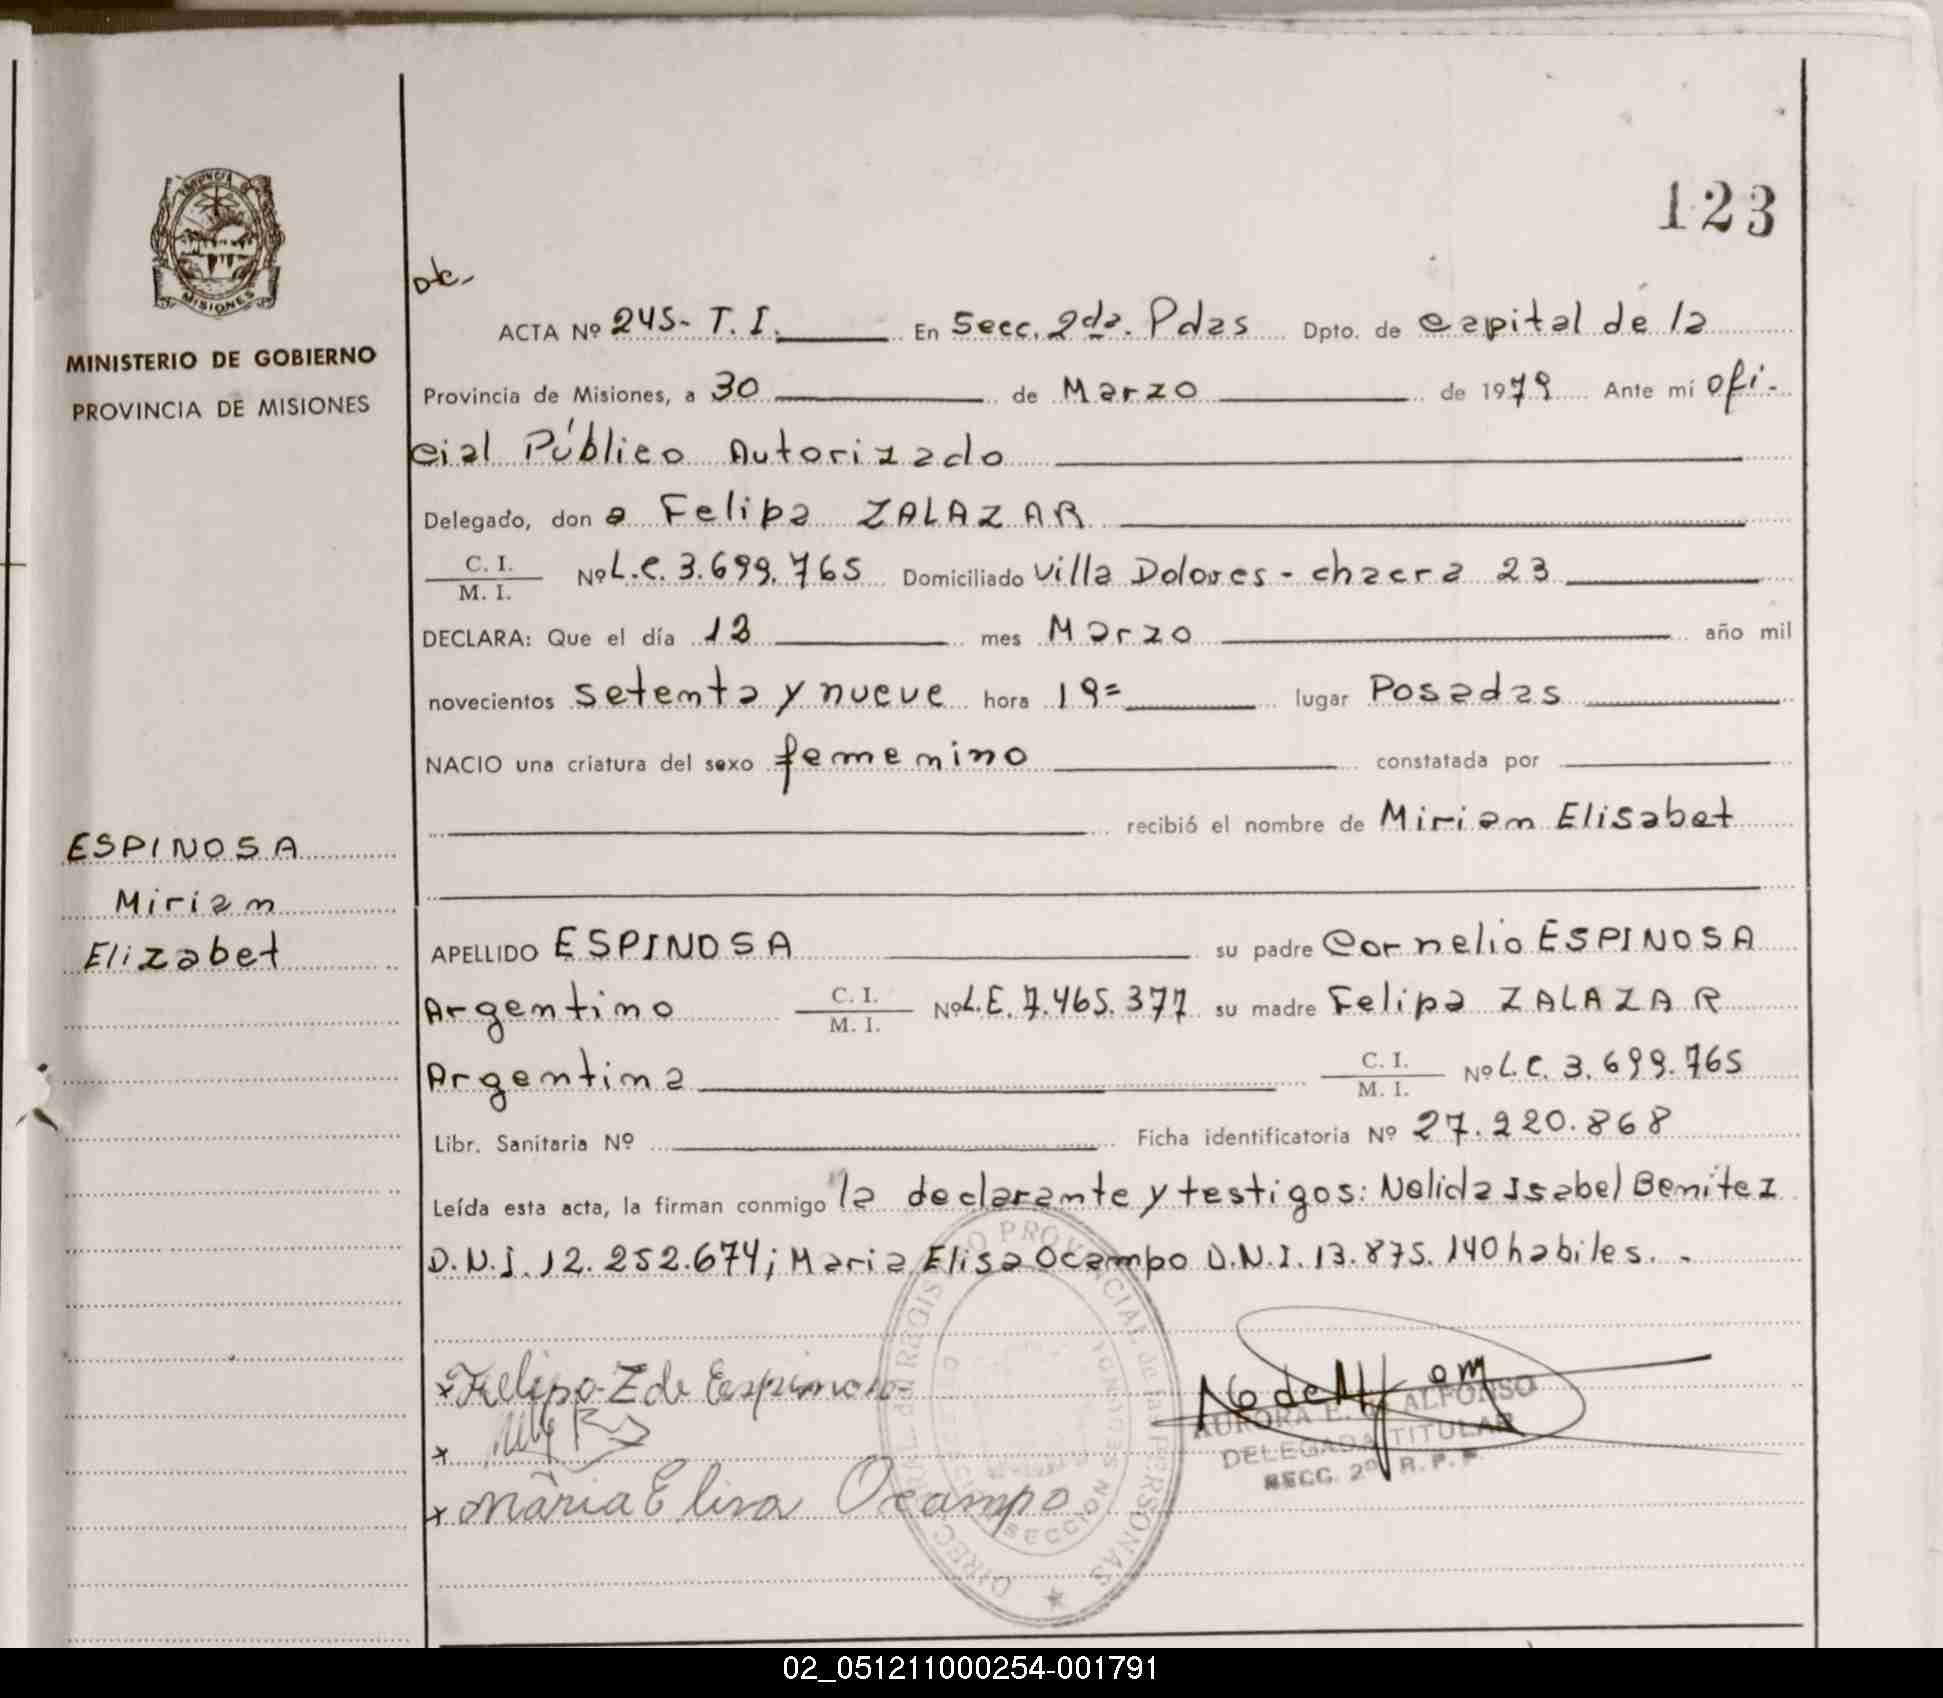 123
PROVINCIA DE
MISIONES
MINISTERIO DE GOBIERNO
PROVINCIA DE MISIONES
ACTA Nº 245- T. I. En Secc. 2da. Pdas Dpto. de Capital de la
Provincia de Misiones, a 30 de Marzo de 1979 Ante mí Ofi-
cial Público Autorizado
Delegado, don a Felipa ZALAZAR
C. I.
M. I. Nº L.C. 3.699.765 Domiciliado Villa Dolores - chacra 23
DECLARA: Que el día 13 mes Marzo año mil
novecientos setenta y nueve hora 19= lugar Posadas
NACIO una criatura del sexo femenino constatada por
recibió el nombre de Miriam Elisabet
ESPINOSA
Miriam
Elizabet
APELLIDO ESPINOSA su padre Cornelio ESPINOSA
Argentino C. I.
M. I. Nº L.E. 7.465.377 su madre Felipa ZALAZAR
Argentina C. I.
M. I. Nº L.C. 3.699.765
Libr. Sanitaria Nº Ficha identificatoria Nº 27.220.868
Leída esta acta, la firman conmigo la declarante y testigos: Nelida Isabel Benitez
D.N.I. 12.252.674; Maria Elisa Ocampo D.N.I. 13.875.140 habiles. -
x Felipa Z de Espinosa
x
x Maria Elisa Ocampo
AURORA E. ALFONSO
DELEGADA TITULAR
SECC. 2º R. P. P.
DIREC. GRAL. del REGISTRO PROVINCIAL de las PERSONAS
SECCION
MISIONES
02_051211000254-001791